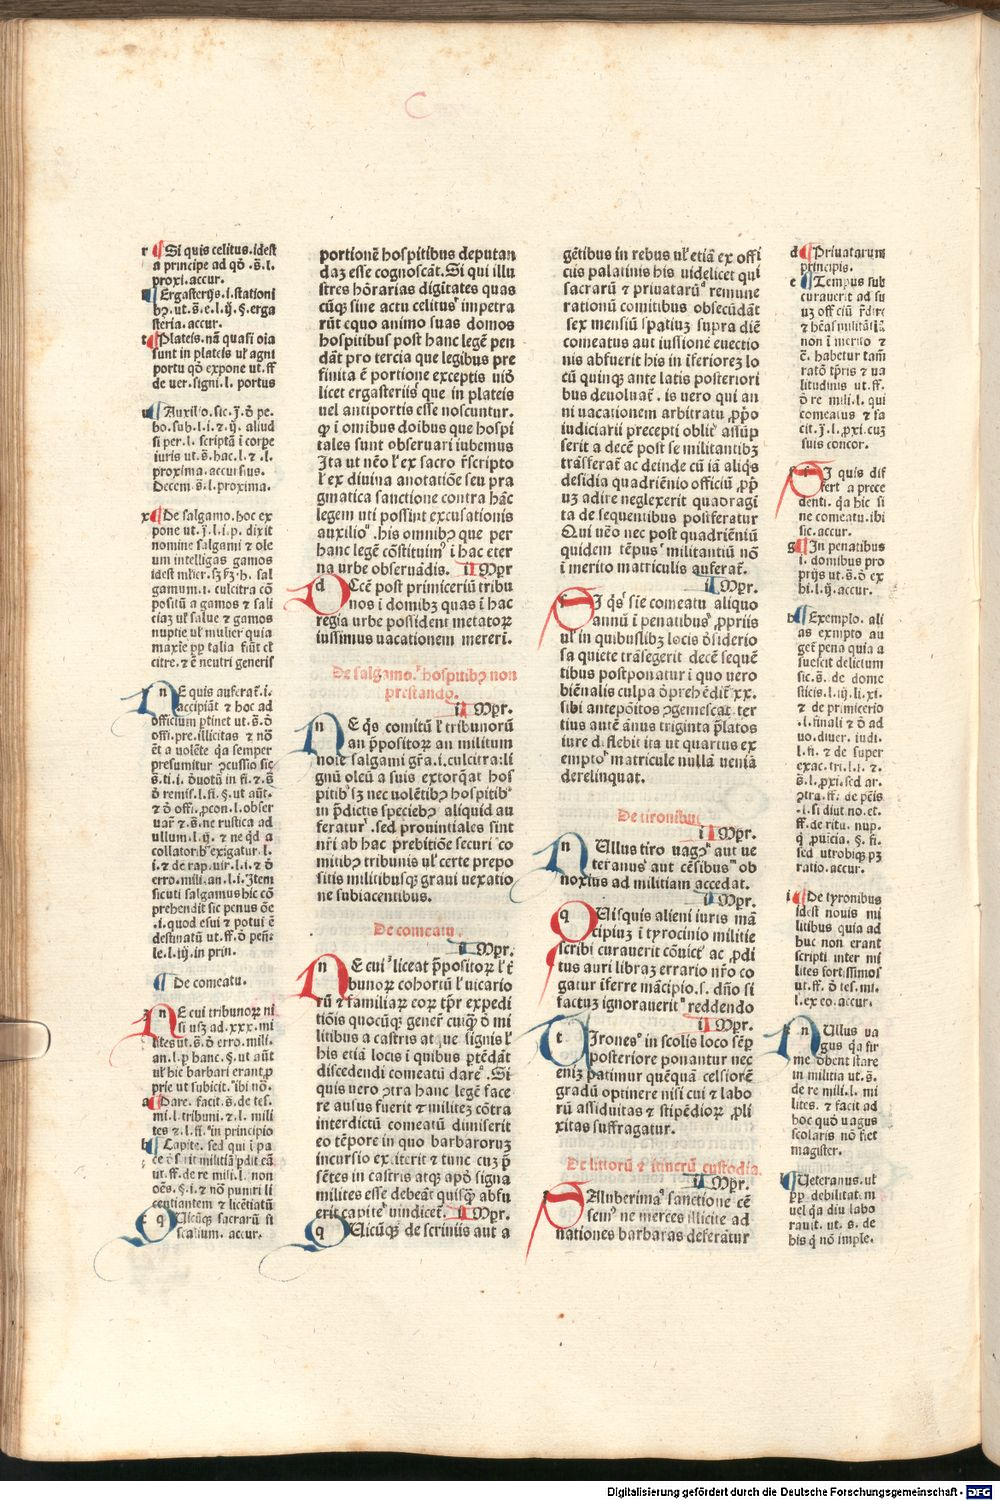 r ¶Si quis celitus.idest
a principe ad qd̄ .s̄.l.
proxi.accur.
s ¶Ergasterijs.i.stationi
bꝫ.ut.s̄.e.l.ij.§.erga
steria.accur.
t ¶Plateis.nā quasi oīa
sunt in plateis ul̓ agni
portu qd̄ expone ut.ff
de uer.signi.l. portus
u ¶Auxilio.sic.J.d̄ pe.
ho.sub.l.i.⁊.ij. aliud
si per.l. scriptā ī corpe
iuris ut.s̄.hac.l.⁊ .l.
proxima.accursius.
Decem.s̄.l.proxima.
x ¶De salgamo.hoc ex
pone ut.J.l.i.p. dixit
nomine salgami ⁊ ole
um intelligas gamos
gamum.i. culcitra cō
positū a gamos ⁊ sali
ciaꝫ ul̓ salue ⁊ gamos
nuptie ul̓ mulier quia
citre.⁊ ē neutri generis
n E quis auferat̄.i.
accipiāt ⁊ hoc ad
officium ptinet ut.s̄.d̄
offi.pre.illicitas ⁊ nō
ēt a uolēte q̄a semper
presumitur ꝯcussio sic
s̄.ti.i. d̄uotū in fi.⁊.s̄
d̄ remis.l.fi.§.ut aūt.
⁊ d̄ offi.ꝓcon.l.obser
uar̄ ⁊.s̄.ne rustica ad
ullum.l.ij. ⁊ ne qd̄ a
collatorib̓ exigatur.l.
i.⁊ de rap.uir.l.i.⁊ d̄
erro.mili.an.l.i.Item
sicuti salgamus hic cō
prehendit sic penus ōe
.i.quod esui ⁊ potui ē
destinatū ut.ff.d̄ peñ:
le.l.iij.in prin.
¶ De comeatu.
z n E cui tribunoꝝ ni
si usꝫ ad.xxx.mi
lites ut.s̄.d̄ erro.mili.
an.l.p hanc.§.ut aūt
ul̓ hic barbari erant,p
prie ut subicit.ibi nō.
a ¶Dare. facit.s̄.de tes.
mi.l. tribuni.⁊.l. mili
tes ⁊.l.fi.in principio
b ¶Capite. sed qui ī pa
ce d̄serit militiā ꝑdit eā
ut.ff.de re mili.l. non
oēs.§.i.⁊ nō puniri li
centiantem ⁊ licētiatū
c q Uicūqꝫ sacrarū si
scalium. accur.
portionē hospitibus deputan
daꝫ esse cognoscāt.Si qui illu
stres honrarias digitates quas
cūqꝫ sine actu celitus impetra
rūt equo animo suas domos
hospitibus post hanc legē pen
dāt pro tercia que legibus pre
finita ē portione exceptis uid̄
licet ergasteriis que in plateis
uel antiportis esse noscuntur.
q̨ ī omnibus doibus que hospi
tales sunt obseruari iubemus
Ita ut nēo l̓ ex sacro r̄scripto
l̓ ex diuina anotatiōe seu pra
gmatica sanctione contra hāc
legem uti possint excusationis
auxilio .his omnibꝫ que per
hanc legē cōstituim̓ ī hac eter
na urbe obseruādis. iI Mꝓr
d Ecē post primiceriū tribu
nos i domibꝫ quas ī hac
regia urbe possident metatoꝝ
iussimus uacationem mereri.
De salgamo. hospitibꝫ non
prestando.
iI Mꝓr.
n E q̄s comitū l̓ tribunorū
an p̄positoꝝ an militum
noīe salgami gr̄a.i.culcitra:li
gnū oleū a suis extorq̄at hos
pitib̓ sꝫ nec uolētibꝫ hospitib̓
in p̄dictis speciebꝫ aliquid au
feratur .sed prouintiales sint
nr̄i ab hac prebitiōe securi co
mitibꝫ tribunis ul̓ certe prepo
sitis militibusqꝫ graui uexatio
ne subiacentibus.
De comeatu.
iI Mꝓr.
n E cui liceat p̄positoꝝ l̓ tr̄
bunoꝝ cohortū l̓ uicario
rū ⁊ familiaꝝ eoꝝ tp̄r expedi
tiōis quocūqꝫ gener̄ cuiq̨ d̄ mi
litibus a castris atque signis l̓
his etiā locis ī quibus ꝑtēdāt
discedendi comeatū dare .Si
quis uero ꝯtra hanc legē face
re ausus fuerit ⁊ militeꝫ cōtra
interdictū comeatū dimiserit
eo tēpore in quo barbaroruꝫ
incursio exiterit ⁊ tunc cuꝫ p̄
sētes in castris atqꝫ apd̄ signa
milites esse debeāt quisqꝫ absu
erit capite uindicet̄. iI Mꝓr.
q Uicūqꝫ de scriniis aut a
gētibus in rebus ul̓ etiā ex offi
ciis palatinis his uidelicet qui
sacrarū ⁊ priuatarū remune
rationū comitibus obsecūdāt
sex mensiū spatiuꝫ supra diē
comeatus aut iussione euectio
nis abfuerit his in īferiorez lo
cū quinqꝫ ante latis posteriori
bus deuoluat̄. is uero qui an
ni uacationem arbitratu ꝓpo
iudiciarii precepti oblit̓ assūp
serit a decē post se militantibꝫ
trāsferat̄ ac deinde cū iā aliq̄s
desidia quadriēnio officiū ꝓp̄
uꝫ adire neglexerit quadragī
ta de sequentibus posticratur
Qui uēo nec post quadriēniū
quidem tēpus militantiū nō
ī merito matriculis auferat̄.
iI Mꝓr.
s I q̄s sīe comeatu aliquo
annū ī penatibus ꝓpriis
ul̓ in quibuslibꝫ locis d̄siderio
sa quiete trāsegerit decē sequē
tibus postponatur ī quo uero
biēnalis culpa d̄prehēdit̄ xx.
sibi antepōitos ꝯgemescat ter
tius autē ānus triginta p̄latos
iure d̄ flebit ita ut quartus ex
empto matricule nullā ueniā
derelinquat.
De tironibus
iI Mꝓr.
n Ullus tiro uagꝫ aut ue
teranus aut cēsibus ob
noxius ad militiam accedat.
iI Mꝓr.
q Uisquis alieni iuris mā
cipiuꝫ ī tyrocinio militie
scribi curauerit cōuict̓ ac ꝓdi
tus auri libraꝫ errario nr̄o co
gatur īferre mācipio.s. dn̄o si
factuꝫ ignorauerit reddendo
iI Mꝓr.
t Irones in scolis loco sēꝑ
posteriore ponantur nec
eniꝫ patimur quēquā celsiorē
gradū optinere nisi cui ⁊ labo
rū assiduitas ⁊ stipēdioꝝ ꝓli
xitas suffragatur.
De littorū ⁊ itinerū custodia.
iI Mꝓr.
s Aluberima sanctione cē
sem̓ ne merces illicite ad
nationes barbaras deferātur
d ¶Priuatarum
principis.
e ¶Tempus sub
curauerit ad su
non ī merito ⁊
ē. habetur tam̄
ratō tp̄ris ⁊ ua
litudinis ut.ff.
d̄ re mili.l. qui
comeatus ⁊ fa
cit.J.l.ꝓxi.cuꝫ
suis concor.
f s I quis dif
fert a prece
denti. q̄a hic si
ne comeatu.ibi
sic.accur.
g ¶In penatibus
i. domibus pro
prijs ut.s̄.d̄ ex
hi.l.ij.accur.
h ¶Exemplo. ali
as exmpto au
get̄ pena quia a
suescit delictum
sic.s̄. de dome
sticis.l.iij.li.xi.
⁊ de primicerio
.l.finali ⁊ d̄ ad
uo.diuer. iudi.
l.fi. ⁊ de super
exac.tri.l.i. ⁊.
s̄.l.ꝓxi.sed ar.
ꝯtra.ff. de pēis
.i.si diut no.et.
ff.de ritu. nup.
q̄ ꝓuicia. §. fi.
sed utrobiqꝫ pꝫ
ratio.accur.
i ¶De tyronibus
idest nouis mi
litibus quia ad
huc non erant
scripti inter mi
lites fortissimos
ut.ff. d̄ tes.mi.
l.ex eo.accur.
n Ullus ua
gus q̄a fir
me d̄bent stare
in militia ut.s̄.
de re mili.l. mi
lites. ⁊ facit ad
hoc quod uagus
scolaris nō fiet
magister.
¶Veteranus.ut
ꝓp̄ debilitatem
uel q̄a diu labo
rauit. ut. s̄. de
his q̄ nō imple.
Digitalisierung gefördert durch die Deutsche Forschungsgemeinschaft - DFG